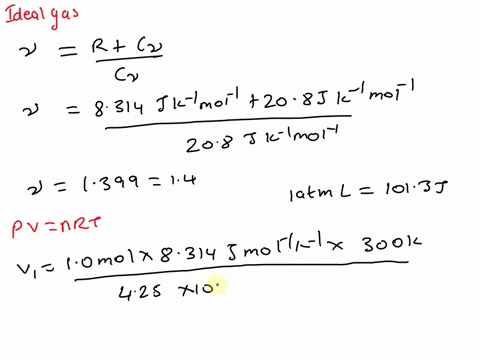 Ideal gas
ν = R + Cν / Cν
ν = 8.314 J K⁻¹ mol⁻¹ + 20.8 J K⁻¹ mol⁻¹ / 20.8 J K⁻¹ mol⁻¹
ν = 1.399 = 1.4
1 atm L = 101.3 J
PV = nRT
V₁ = 1.0 mol × 8.314 J mol⁻¹ K⁻¹ × 300 K / 4.25 × 10